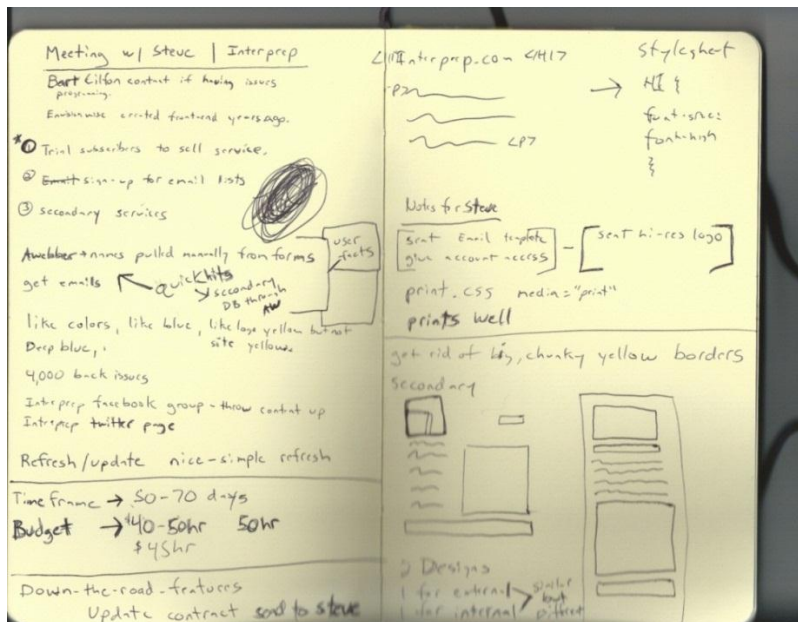 Meeting w/ Steve | Interprep
Bart Cilfon contact if having issues
programming.
Envisionwise created frontend years ago.
*① Trial subscribers to sell service.
② Email sign-up for email lists
③ secondary services
Awebber → names pulled manually from forms
user
facts
get emails
quickhits
secondary
DB through
AW
like colors, like blue, like logo yellow but not
Deep blue, site yellow.
4,000 back issues
Interprep facebook group - throw content up
Interprep twitter page
Refresh/update nice-simple refresh
Time frame → 50-70 days
Budget → $40-50hr 50hr
$45hr
Down-the-road-features
Update contract send to steve
Interprep.com </H1>
<P>
<P>
Stylesheet
→ H1 {
font-size:
font-high
}
Notes for Steve
sent Email template
give account access
- [sent hi-res logo]
print.css media="print"
prints well
get rid of big, chunky yellow borders
secondary
2 Designs
1 for external
1 for internal
similar
but
different